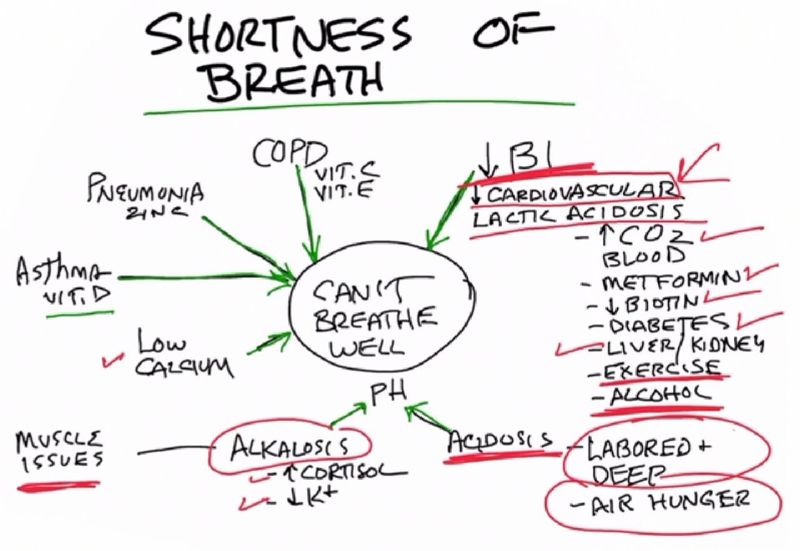 SHORTNESS OF
BREATH
COPD
VIT. C
VIT. E
PNEUMONIA
ZINC
ASTHMA
VIT. D
LOW
CALCIUM
CAN'T
BREATHE
WELL
↓ B1
↓ CARDIOVASCULAR
LACTIC ACIDOSIS
- ↑ CO2
BLOOD
- METFORMIN
- ↓ BIOTIN
- DIABETES
- LIVER/KIDNEY
- EXERCISE
- ALCOHOL
PH
MUSCLE
ISSUES
ALKALOSIS
- ↑ CORTISOL
- ↓ K+
ACIDOSIS
- LABORED +
DEEP
- AIR HUNGER